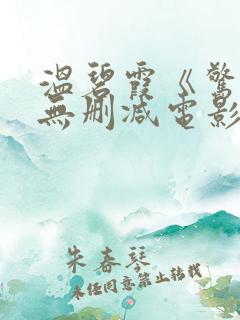 溫碧霞《驚
無刪减電影
朱春琴
未经同意禁止转载